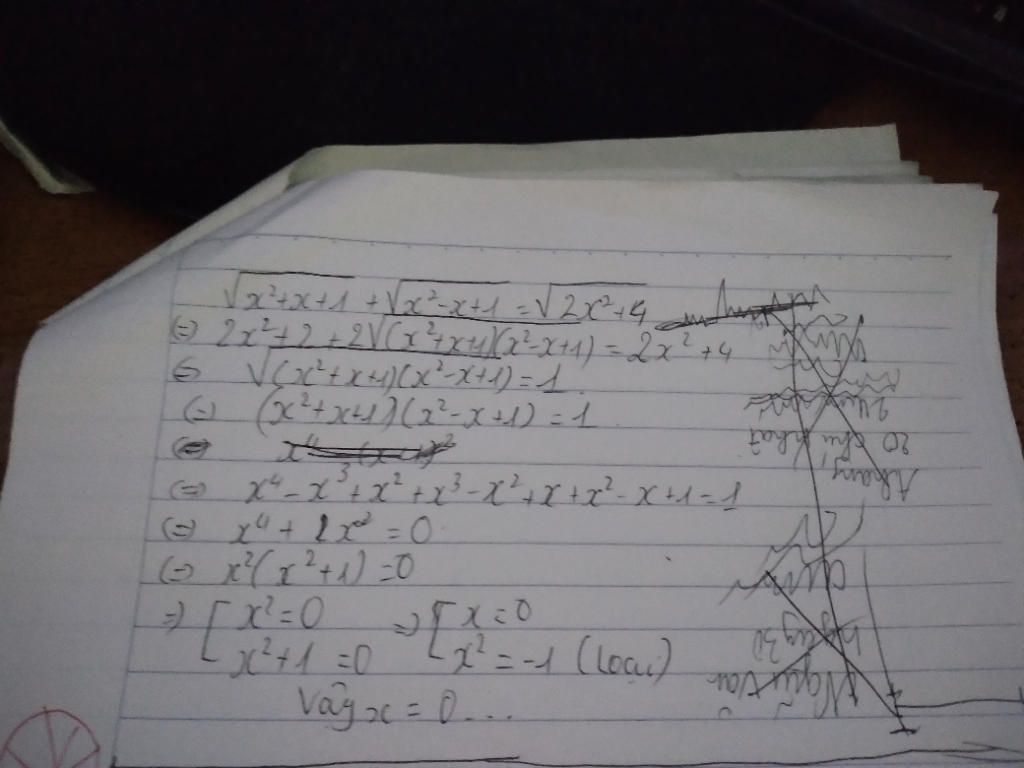 √(x²+x+1) + √(x²-x+1) = √(2x²+4)
(=) 2x²+2+2√((x²+x+1)(x²-x+1)) = 2x²+4
(=) √((x²+x+1)(x²-x+1)) = 1
(=) (x²+x+1)(x²-x+1) = 1
(=) x⁴ - x³ + x² + x³ - x² + x + x² - x + 1 = 1
(=) x⁴ + 1x² = 0
(=) x²(x²+1) = 0
=) [ x² = 0 =) [ x = 0
x²+1 = 0 x² = -1 (loại)
Vậy x = 0 ...
Ngữ Văn